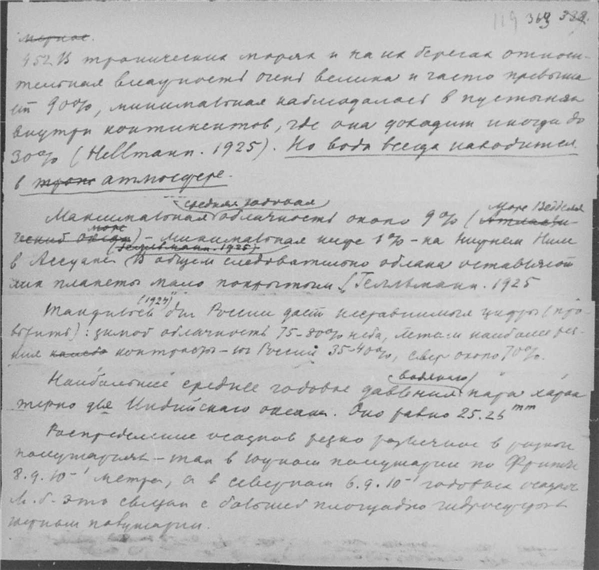 119 369 392.
морпос.
452. В тропических морях и на их берегах относи-
тельная влажность очень велика и часто превыша
ет 90%, минимальная наблюдалась в пустынях
внутри континентов, где она доходит иногда до
30% (Hellmann. 1925). Но вода всегда находится
в атмосфере.
средняя годовая
Максимальная облачность около 9% (море
) – минимальная ниже 1% – на Нижнем Ниле
(Гелльманн. 1925)
в Ассуане. В общем следовательно облака оставляют
лик планеты мало покрытым (Гелльманн. 1925
(1924)
для России даёт несравнимые цифры (про
): зимой облачность 75-80% неба, летом наиболее рез
кие контрасты – юг России 35-40%, север около 70%.
водяного
Наибольшее среднее годовое давление пара харак
терно для Индийского океана. Оно равно 25.26 mm
Распределение осадков резко различное в разных
полушариях – так в южном полушарии по Фритше
8.9.10⁻¹ метра, а в северном 6.9.10⁻¹ годовых осадков.
М.б. это связан с большей площадью гидросферы в
южном полушарии.